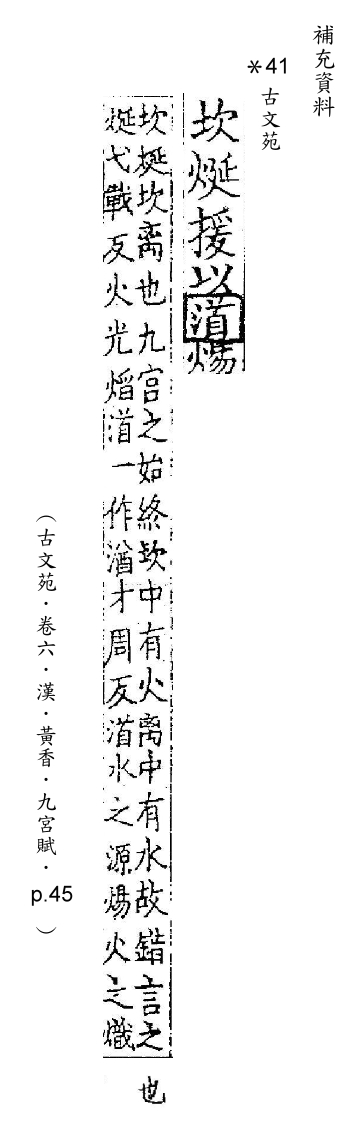 補充資料
＊41 古文苑
坎烻援以渞煬
坎烻坎离也九宮之始終坎中有火离中有水故錯言之也
烻弋戰反火光熖渞一作湭才周反渞水之源煬火之熾
（古文苑．卷六．漢．黃香．九宮賦．p.45）